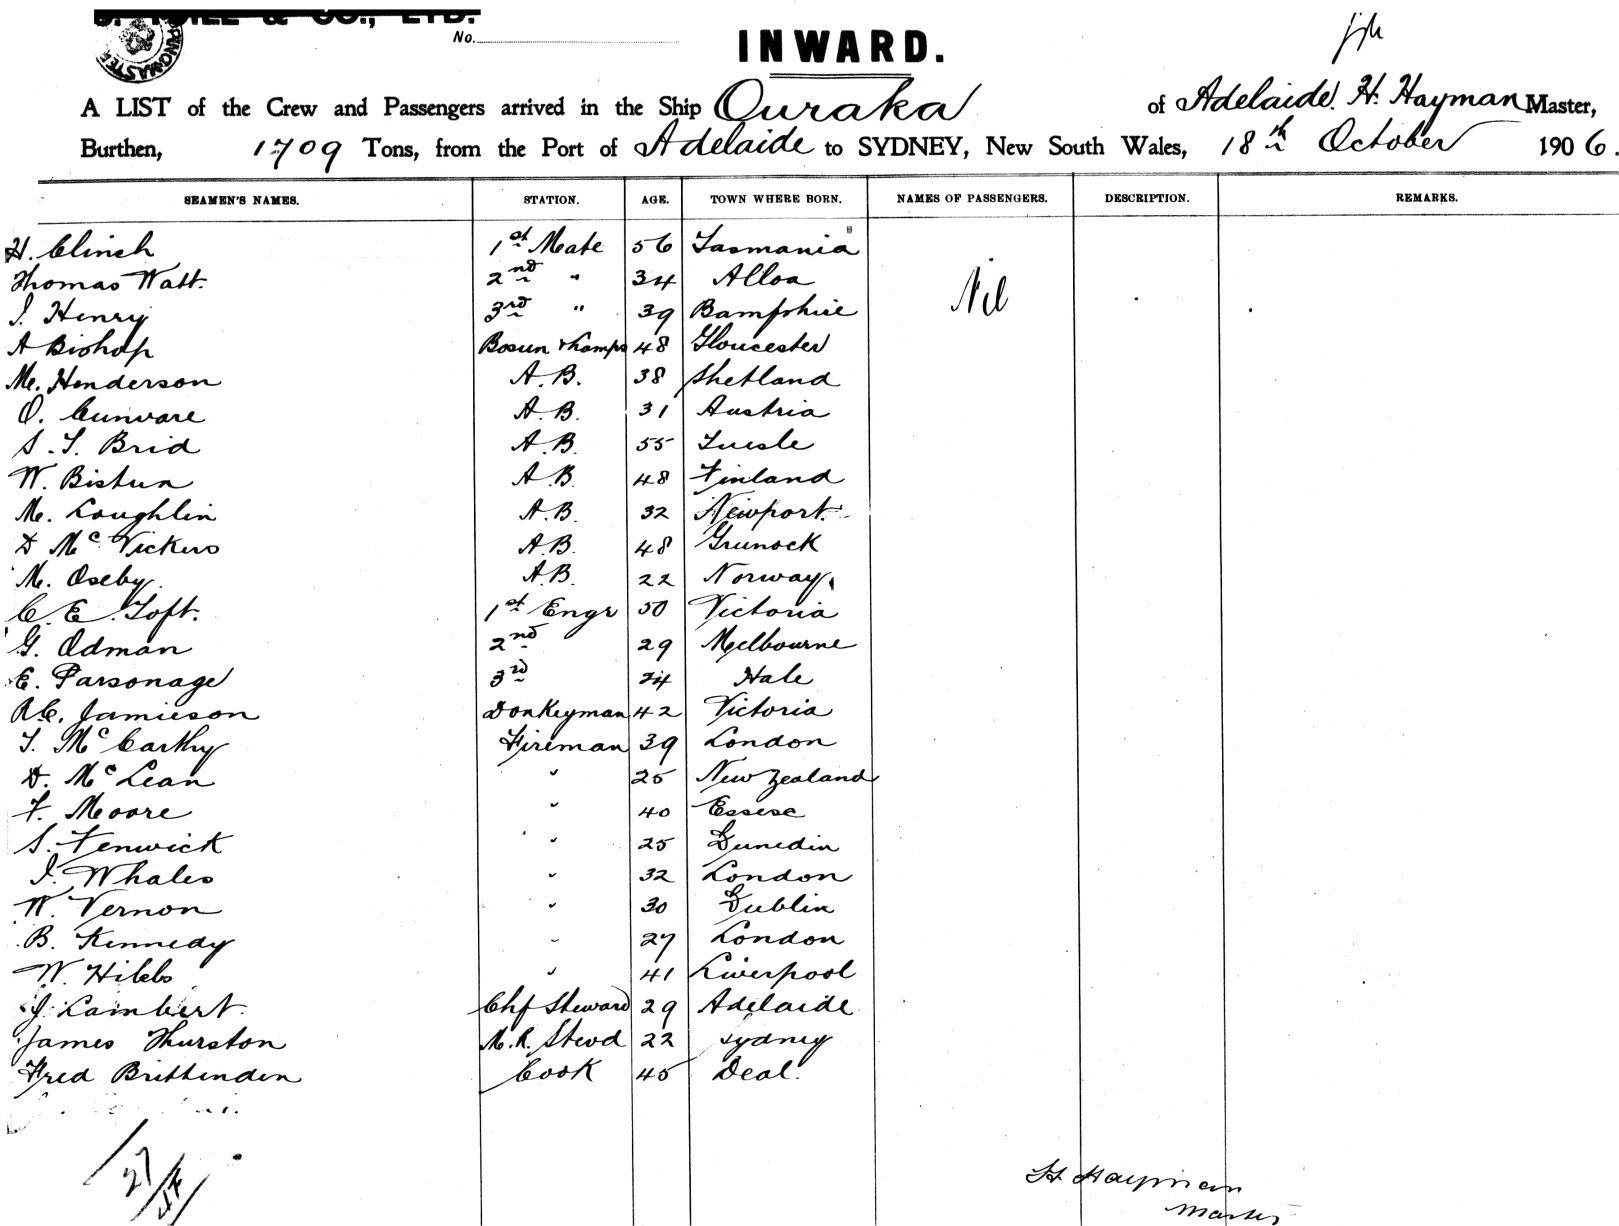 & CO., LTD.
No.
INWARD.
A LIST of the Crew and Passengers arrived in the Ship Ouraka of Adelaide. H. Hayman Master,
Burthen, 1709 Tons, from the Port of Adelaide to SYDNEY, New South Wales, 18th October 1906.
SEAMEN'S NAMES. STATION. AGE. TOWN WHERE BORN. NAMES OF PASSENGERS. DESCRIPTION. REMARKS.
H. Clinch 1st Mate 56 Tasmania "
Thomas Watt. 2nd " 34 Alloa Nil
J. Henry 3rd " 39 Bamfshire
A Bishop Bosun & Lamps 48 Gloucester
Mc. Henderson A.B. 38 Shetland
O. Cunvare A.B. 31 Austria
S. T. Brid A.B. 55
W. Bistun A.B. 48 Finland
Mc. Loughlin A.B. 32 Newport.
D McVickers A.B. 48 Grunock
M. Oseby. A.B. 22 Norway
C. E. Toft. 1st Engr 50 Victoria
G. Odman 2nd 29 Melbourne
E. Parsonage 3rd 24 Hale
R.C. Jamieson Donkeyman 42 Victoria
T. McCarthy Fireman 39 London
D. McLean " 25 New Zealand
F. Moore " 40 Essex
S. Fenwick " 25 Dunedin
J. Whales " 32 London
W. Vernon " 30 Dublin
B. Kennedy " 27 London
W. Hibbs " 41 Liverpool
J. Lambert. Chf Steward 29 Adelaide
James Thurston M.R. Stewd 22 Sydney
Fred Brittenden Cook 45 Deal.
27
H. Hayman
Master